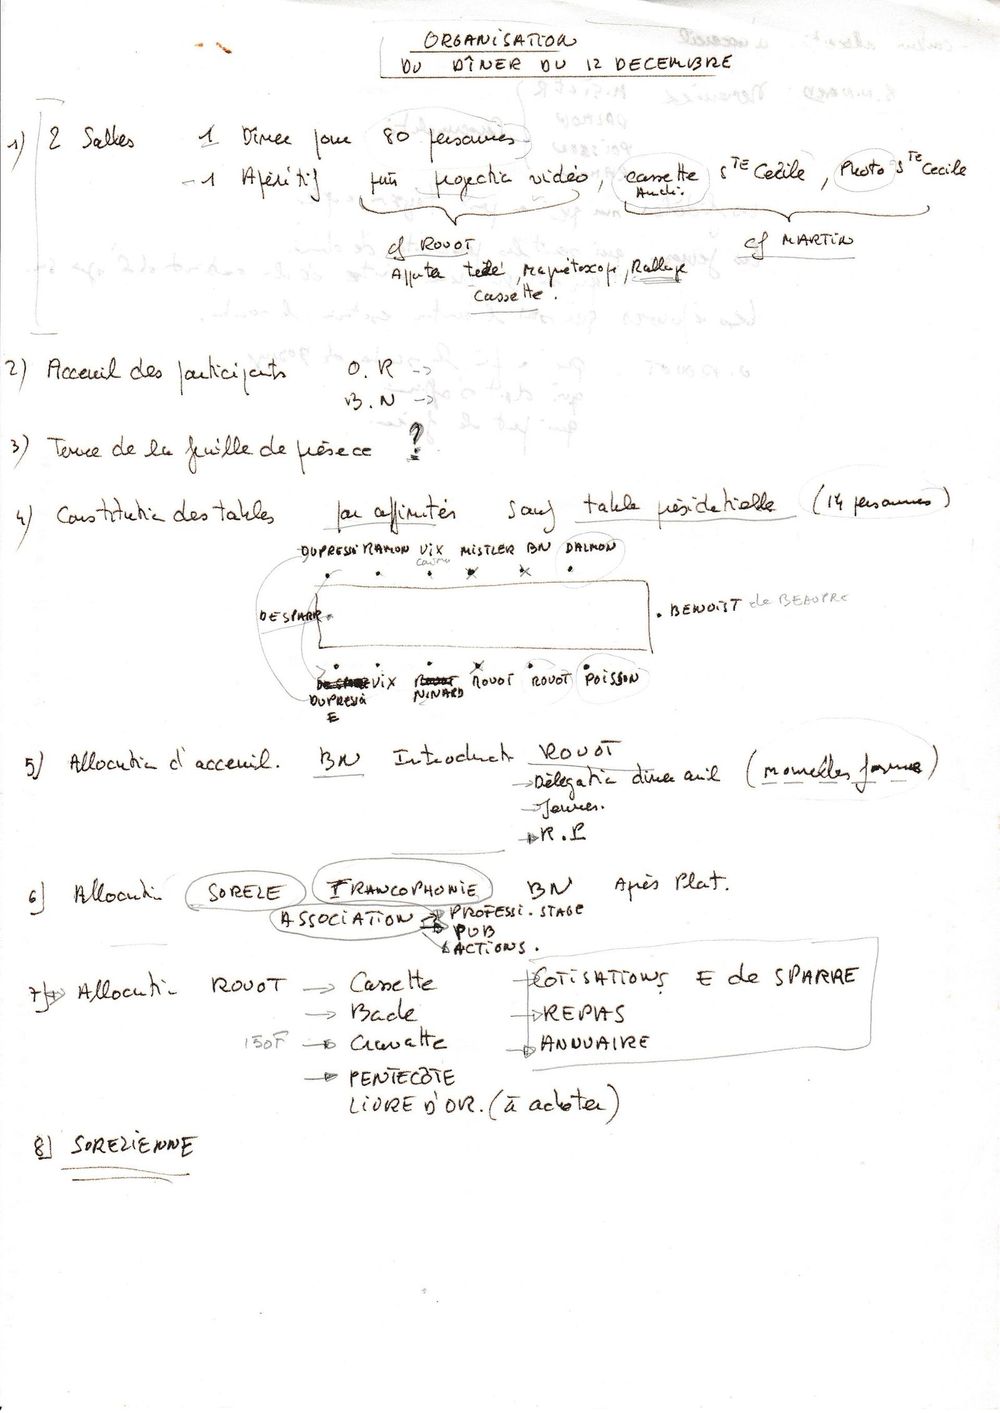 ORGANISATION
DU DÎNER DU 12 DECEMBRE
1) 2 Salles 1 Diner pour 80 personnes
- 1 Apéritif puis projection vidéo, cassette Audi. STE Cecile, Photo STE Cecile
cf ROUOT cf MARTIN
Apporter télé, Magnétoscope, Rallonge
Cassette.
2) Acceuil des participants O.R →
B.N →
3) Tenue de la feuille de présence ?
4) Constitution des tables par affinités sauf table présidentielle (14 personnes)
DUPRESSI RAMON VIX MISTLER BN DALMON
DESPARR BENOIST de BEAUPRE
VIX ROUOT ROUOT POISSON
DUPRESSI NINARD
E
5) Allocution d'acceuil. BN Introduct ROUOT
→ Délégation (nouvelles formes)
→ Jeunes.
→ R.P
6) Allocution SOREZE FRANCOPHONIE BN Après Plat.
ASSOCIATION → PROFESSI. STAGE
PUB
ACTIONS.
7) Allocution ROUOT → Cassette → COTISATIONS E de SPARRE
→ Bade → REPAS
150F → Cravatte → ANNUAIRE
→ PENTECÔTE
LIVRE D'OR. (à acheter)
8) SOREZIENNE